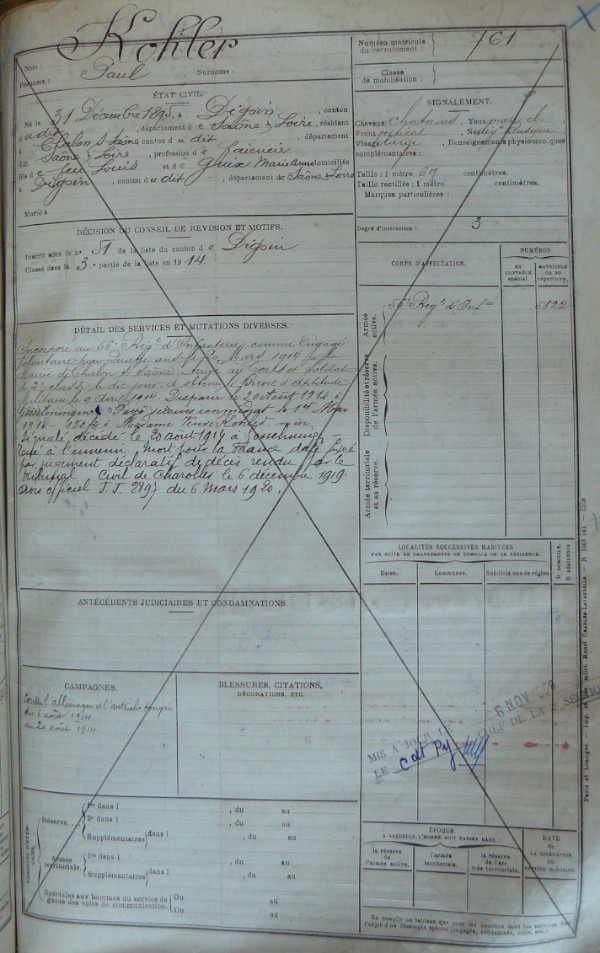 Kohler
Nom :
Prénoms : Paul Surnoms :
Numéro matricule du recrutement : 761
Classe de mobilisation :
ÉTAT CIVIL.
Né le 31 Décembre 1895, à Digoin, canton
du dit, département de Saône & Loire, résident
à Chalon s/ Saône canton du dit, département
de Saône & Loire, profession de
fils de feu Louis et de Marie domiciliés
à Digoin, canton du dit, département de Saône & Loire
Marié à
SIGNALEMENT.
Cheveux châtains Yeux
Front vertical Nez
Visage large Renseignements physionomiques
complémentaires :
Taille : 1 mètre 69 centimètres.
Taille rectifiée : 1 mètre centimètres.
Marques particulières :
Degré d'instruction : 3
DÉCISION DU CONSEIL DE RÉVISION ET MOTIFS.
Inscrit sous le n° 51 de la liste du canton de Digoin
Classé dans la 3e partie de la liste en 1914.
CORPS D'AFFECTATION.
NUMÉROS
AU CONTRÔLE SPÉCIAL.
MATRICULE OU AU RÉPERTOIRE.
Armée active.
56e Rég. d'Inf.ie 5822
Disponibilité et réserve de l'armée active.
Armée territoriale et sa réserve.
DÉTAIL DES SERVICES ET MUTATIONS DIVERSES.
Incorporé au 56e Rég. d'Infanterie comme Engagé
volontaire pour quatre ans le Mars 1914 à la
Mairie de Chalon s/ Saône. Arrivé au Corps et Soldat
de 2e classe le dit jour. A obtenu le Brevet d'aptitude
Militaire le 9 Avril 1914. Disparu le 20 Août 1914 à
Payé secours immédiat le 1er Mai
1916 - 150 f à Madame Veuve Kohler
Signalé décédé le 20 août 1914 à
tué à l'ennemi, mort pour la France date fixée
par jugement déclaratif de décès rendu par le
tribunal Civil de Charolles le 6 décembre 1919.
Avis officiel F.T. 2897 du 6 Mars 1920.
LOCALITÉS SUCCESSIVES HABITÉES
PAR SUITE DE CHANGEMENTS DE DOMICILE OU DE RÉSIDENCE.
Dates. Communes. Subdivisions de région. D. DOMICILE. R. RÉSIDENCE
ANTÉCÉDENTS JUDICIAIRES ET CONDAMNATIONS.
CAMPAGNES.
Contre l'allemagne et l'autriche hongrie
du 6 août 1914
au 20 août 1914
BLESSURES, CITATIONS,
DÉCORATIONS, ETC.
MIS A JOUR LE 6 NOV
LE CHEF DE LA SECTION
Réserve.
1re dans l , du au
2e dans l , du au
Supplémentaires dans l , du au
Armée territoriale.
1re dans l , du au
Supplémentaires dans l , du au
Spéciales aux hommes du service de
garde des voies de communication.
Du au
Du au
ÉPOQUE
A LAQUELLE L'HOMME DOIT PASSER DANS :
la réserve de l'armée active.
l'armée territoriale.
la réserve de l'armée territoriale.
DATE DE LA LIBÉRATION DU SERVICE MILITAIRE.
Ne remplir ce tableau que pour les hommes dont les services